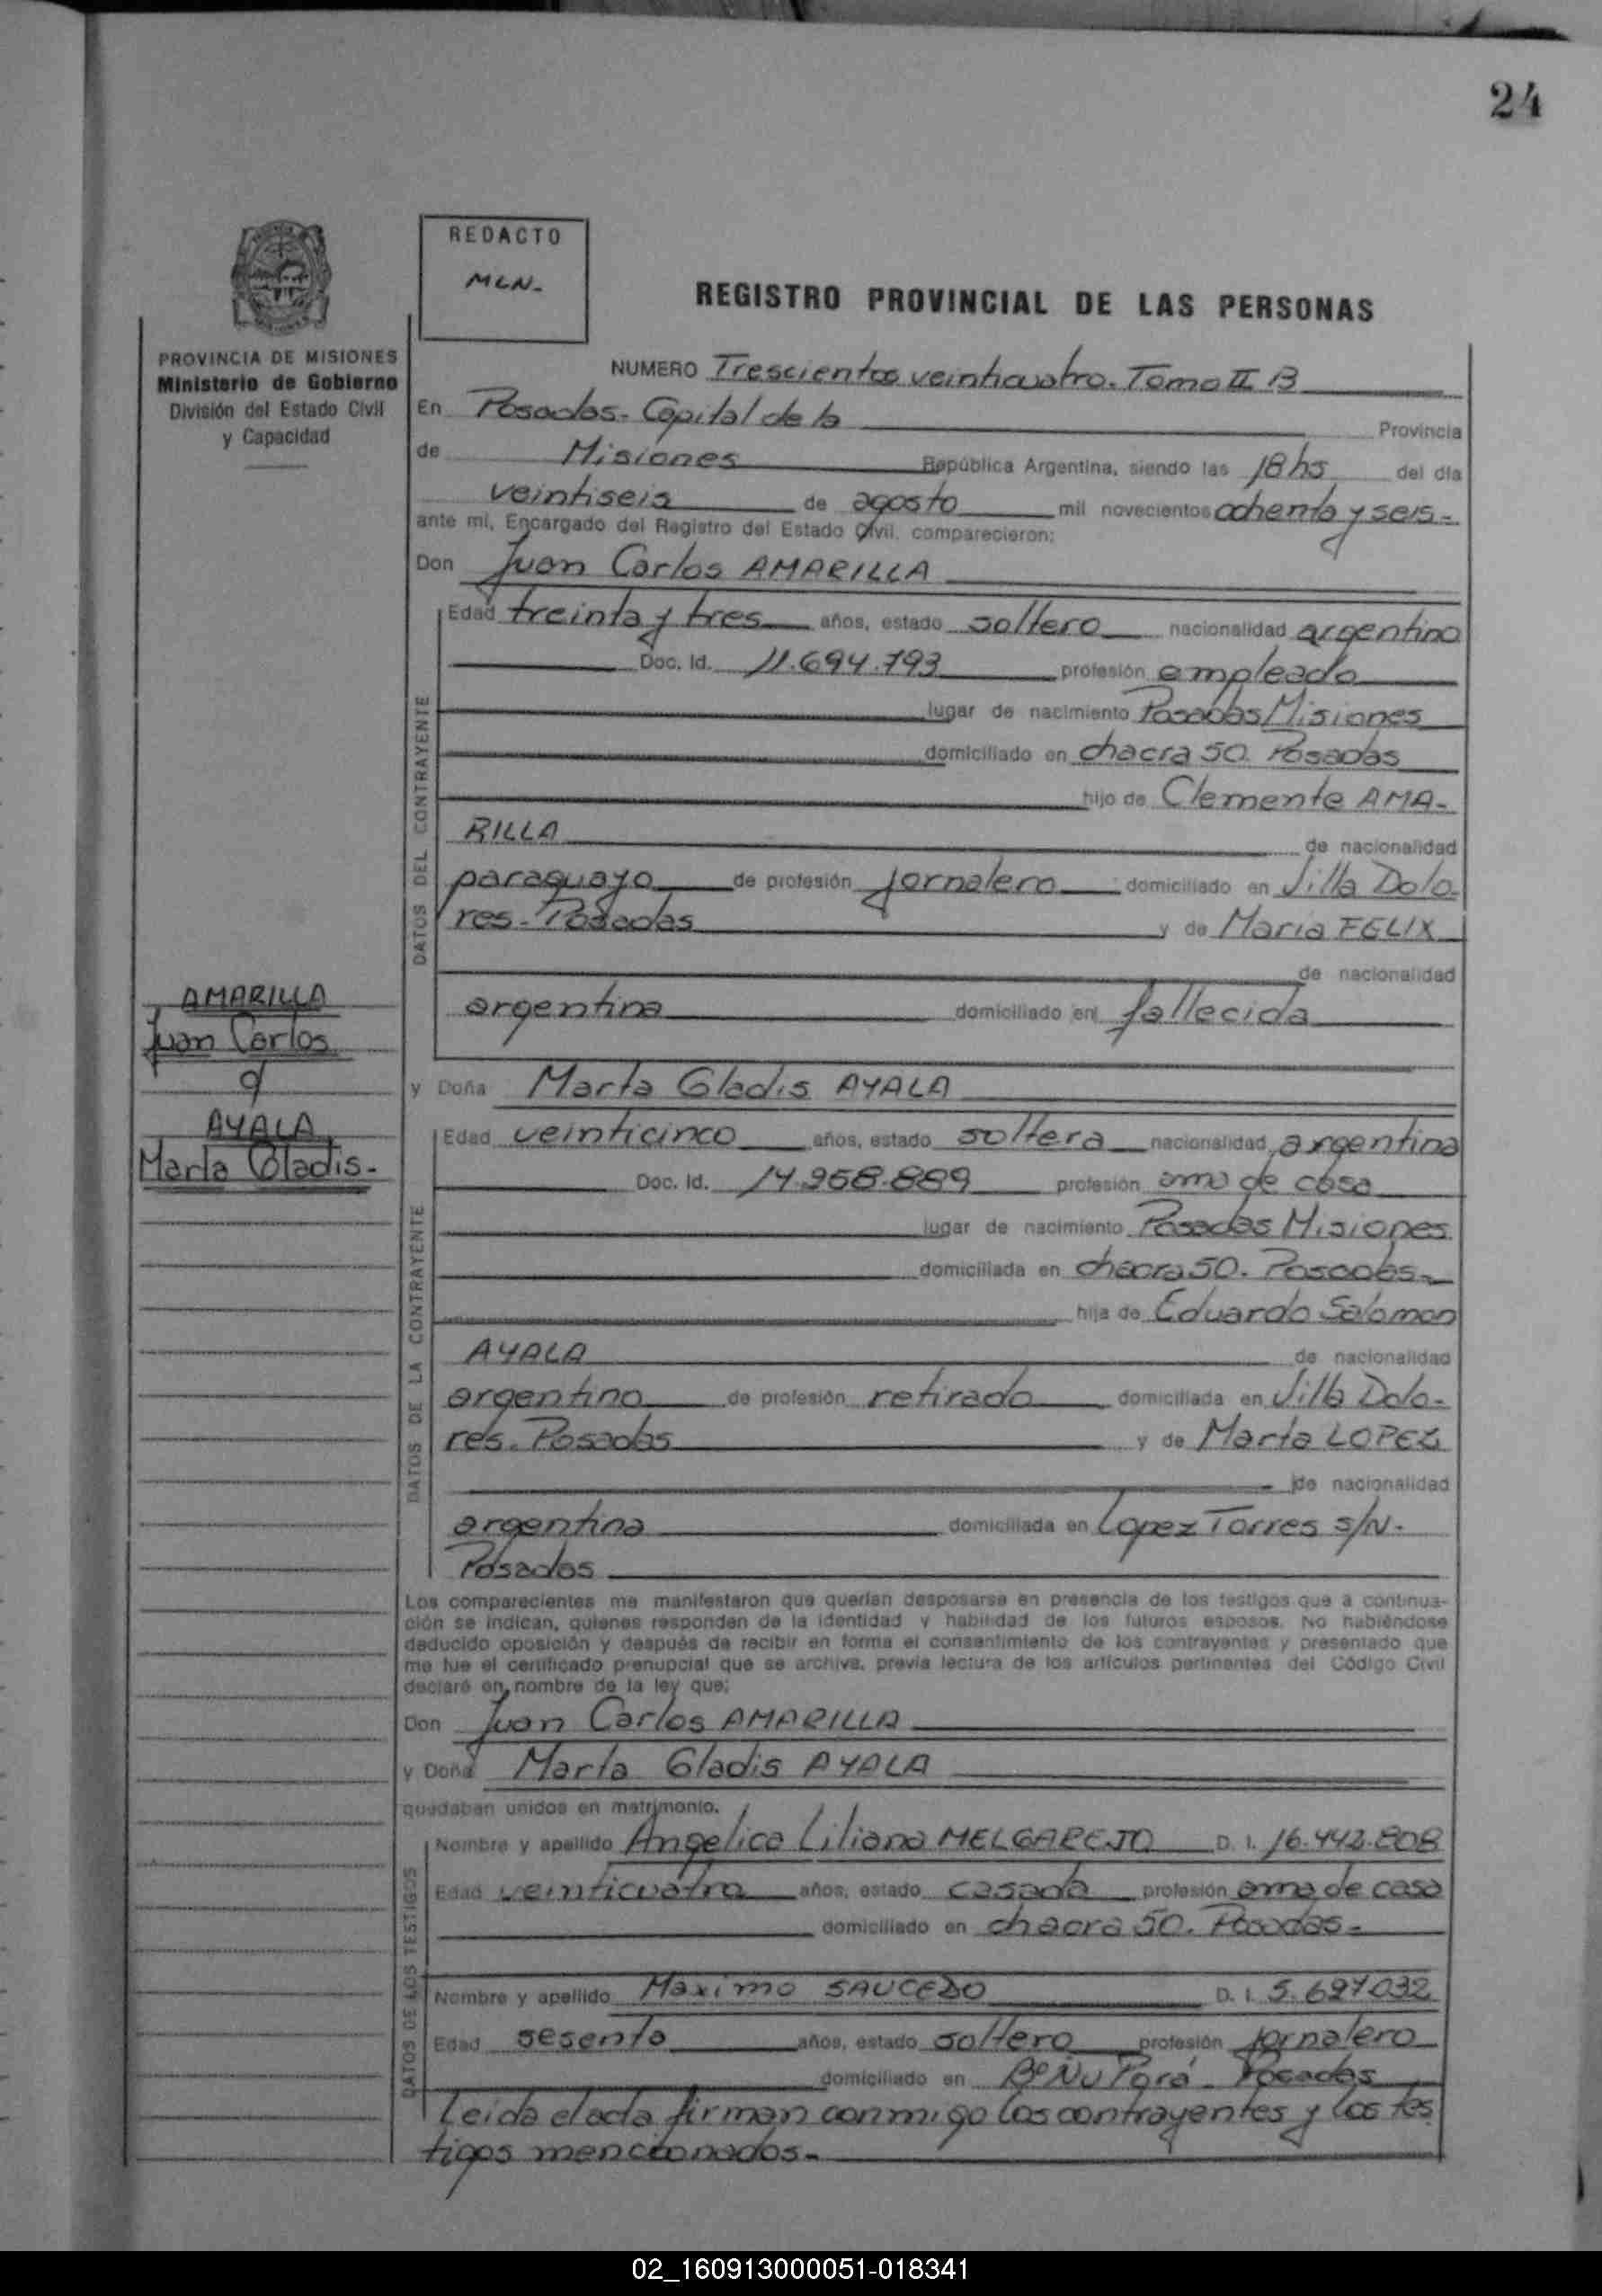 24
REDACTO
MLN-
REGISTRO PROVINCIAL DE LAS PERSONAS
PROVINCIA DE MISIONES
Ministerio de Gobierno
División del Estado Civil
y Capacidad
NUMERO Trescientos veinticuatro. Tomo II B
En Posadas - Capital de la Provincia
de Misiones República Argentina, siendo las 18 hs del día
veintiseis de agosto mil novecientos ochenta y seis-
ante mí, Encargado del Registro del Estado Civil, comparecieron:
Don Juan Carlos AMARILLA
Edad treinta y tres años, estado soltero nacionalidad argentino
Doc. Id. 11.694.793 profesión empleado
lugar de nacimiento Posadas Misiones
domiciliado en chacra 50. Posadas
hijo de Clemente AMA-
RILLA de nacionalidad
paraguayo de profesión jornalero domiciliado en Villa Dolo-
res - Posadas y de Maria FELIX
de nacionalidad
argentina domiciliado en fallecida
DATOS DEL CONTRAYENTE
AMARILLA
Juan Carlos
c/
AYALA
Marta Gladis-
y Doña Marta Gladis AYALA
Edad veinticinco años, estado soltera nacionalidad argentina
Doc. Id. 14.958.889 profesión ama de casa
lugar de nacimiento Posadas Misiones
domiciliada en chacra 50. Posadas-
hija de Eduardo Salomon
AYALA de nacionalidad
argentino de profesión retirado domiciliada en Villa Dolo-
res. Posadas y de Marta LOPEZ
de nacionalidad
argentina domiciliada en Lopez Torres s/N.
Posadas
DATOS DE LA CONTRAYENTE
Los comparecientes me manifestaron que querían desposarse en presencia de los testigos que a continua-
ción se indican, quienes responden de la identidad y habilidad de los futuros esposos. No habiéndose
deducido oposición y después de recibir en forma el consentimiento de los contrayentes y presentado que
me fue el certificado prenupcial que se archiva, previa lectura de los artículos pertinentes del Código Civil
declaré en nombre de la ley que:
Don Juan Carlos AMARILLA
y Doña Marta Gladis AYALA
quedaban unidos en matrimonio.
Nombre y apellido Angelica Liliana MELGAREJO D. I. 16.442.808
Edad veinticuatro años, estado casada profesión ama de casa
domiciliado en chacra 50. Posadas-
Nombre y apellido Maximo SAUCEDO D. I. 5.697.032
Edad sesenta años, estado soltero profesión jornalero
domiciliado en Bº Ñu Porá - Posadas
DATOS DE LOS TESTIGOS
Leida el acta firman conmigo los contrayentes y los tes
tigos mencionados-
02_160913000051-018341